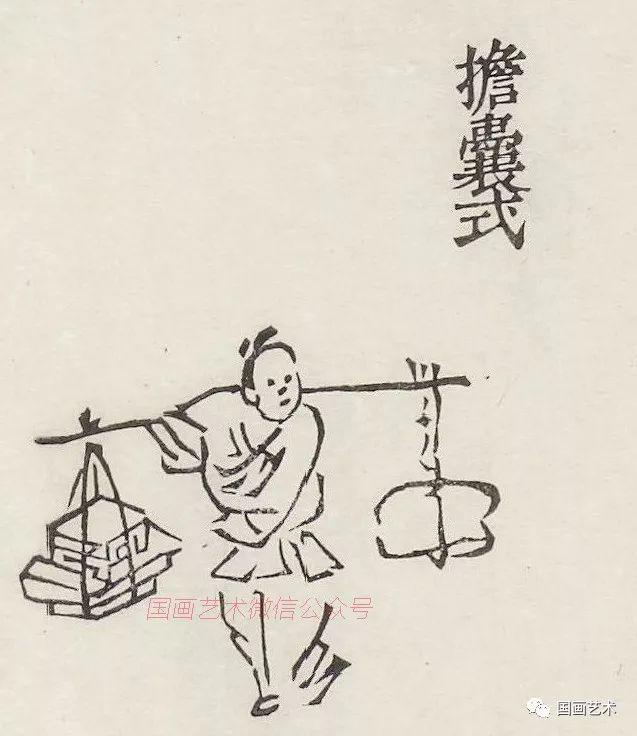 擔囊式
国画艺术微信公众号
国画艺术